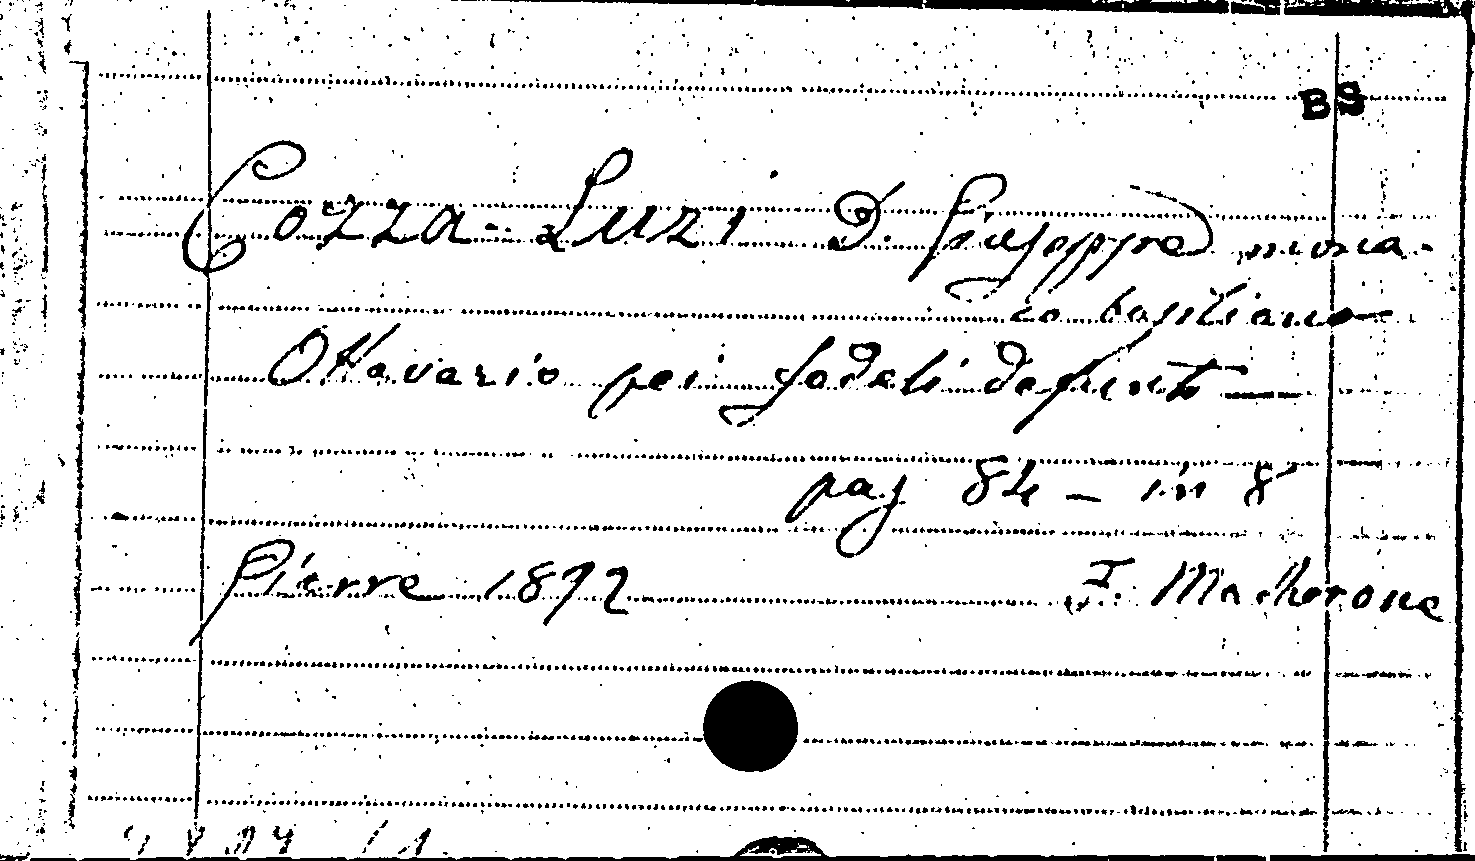 BS
Cozza-Luzi D. Giuseppe mona-
co basiliano
Ottavario pei fedeli defunti—
pag 84 — in 8
1892
F.